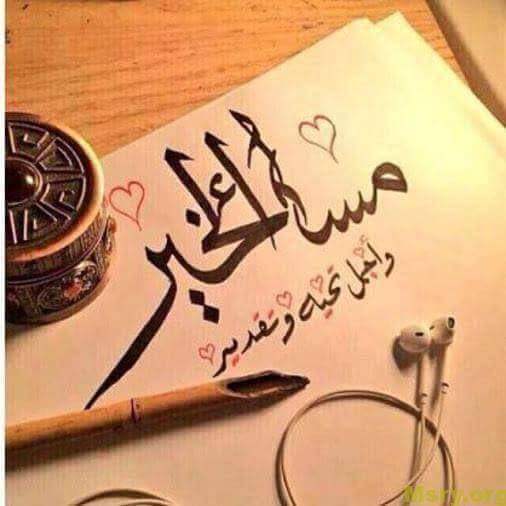 مساء الخير
وأجمل تحيه وتقدير
Msry.org